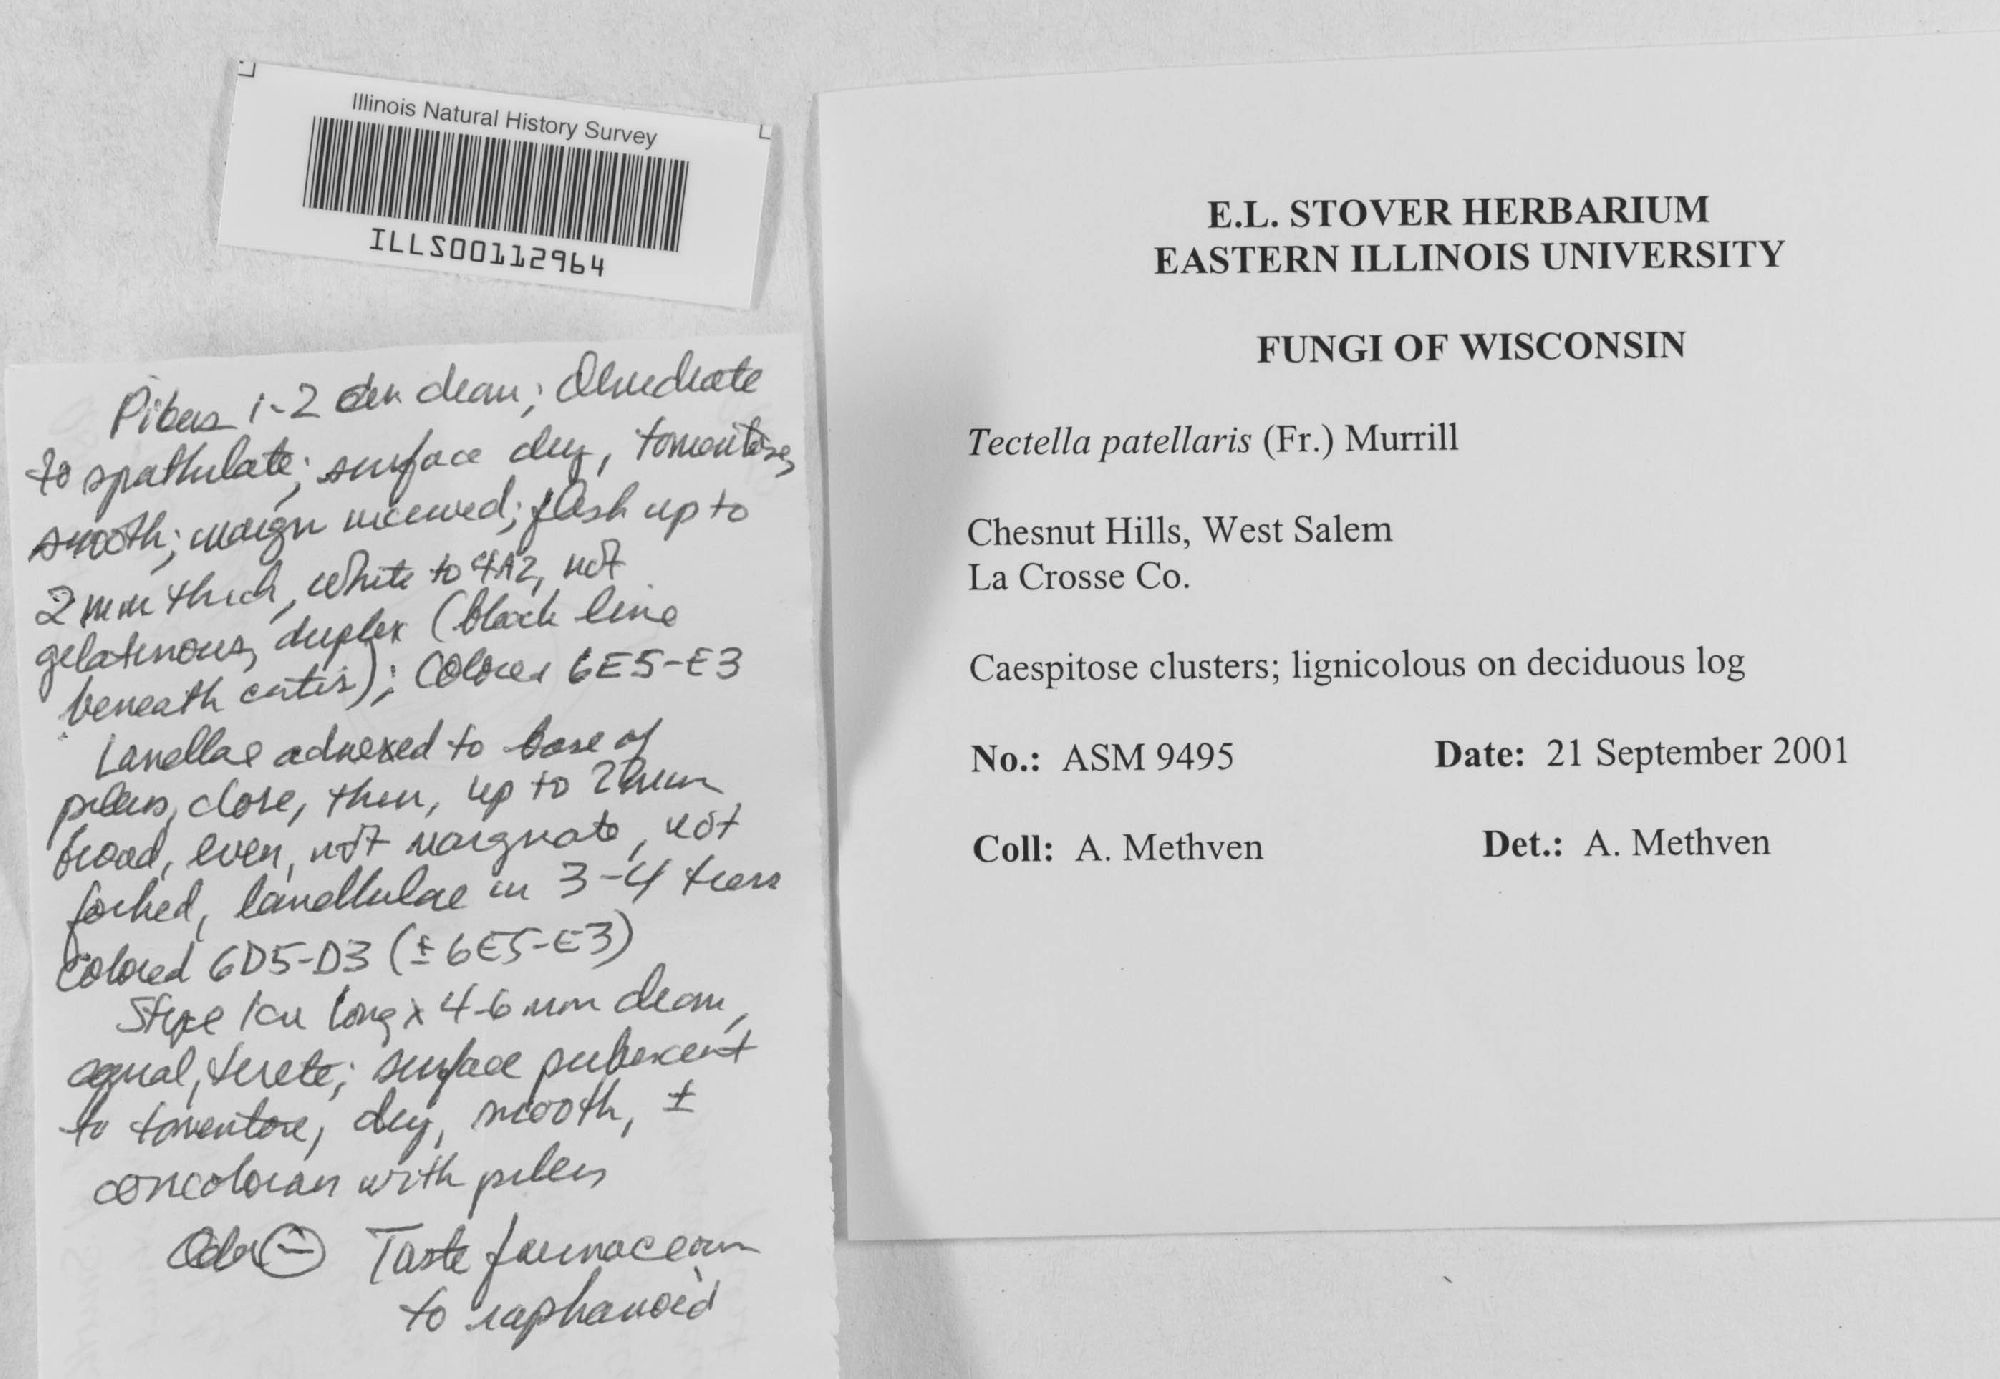 Illinois Natural History Survey
ILLS00112964
Pileus 1-2 cm diam; dimidiate
to spathulate; surface dry, tomentose,
smooth; margin incurved; flesh up to
2 mm thick, white to 4A2, not
gelatinous, duplex (black line
beneath cutis); Colored 6E5-E3
Lamellae adnexed to base of
pileus, close, thin, up to 2 mm
broad, even, not marginate, not
forked, lamellulae in 3-4 tiers
colored 6D5-D3 (± 6E5-E3)
Stipe 1 cm long x 4-6 mm diam,
equal, terete; surface pubescent
to tomentose, dry, smooth, ±
concolorous with pileus
Odor (-) Taste farinaceous
to raphanoid
E.L. STOVER HERBARIUM
EASTERN ILLINOIS UNIVERSITY
FUNGI OF WISCONSIN
Tectella patellaris (Fr.) Murrill
Chesnut Hills, West Salem
La Crosse Co.
Caespitose clusters; lignicolous on deciduous log
No.: ASM 9495 Date: 21 September 2001
Coll: A. Methven Det.: A. Methven